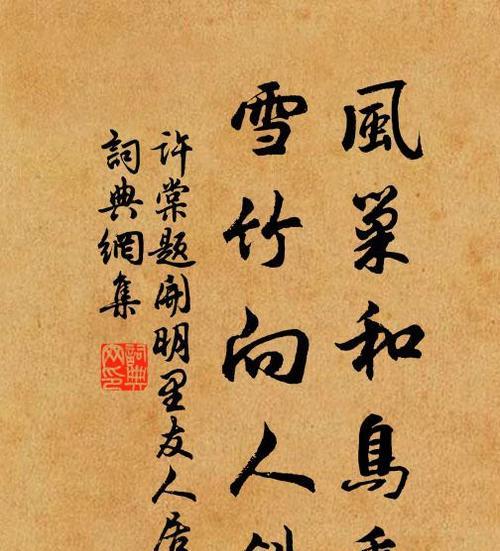 風巢和鳥
雪竹向人
許棠題開明里友人居
詞典網集
詞典网印